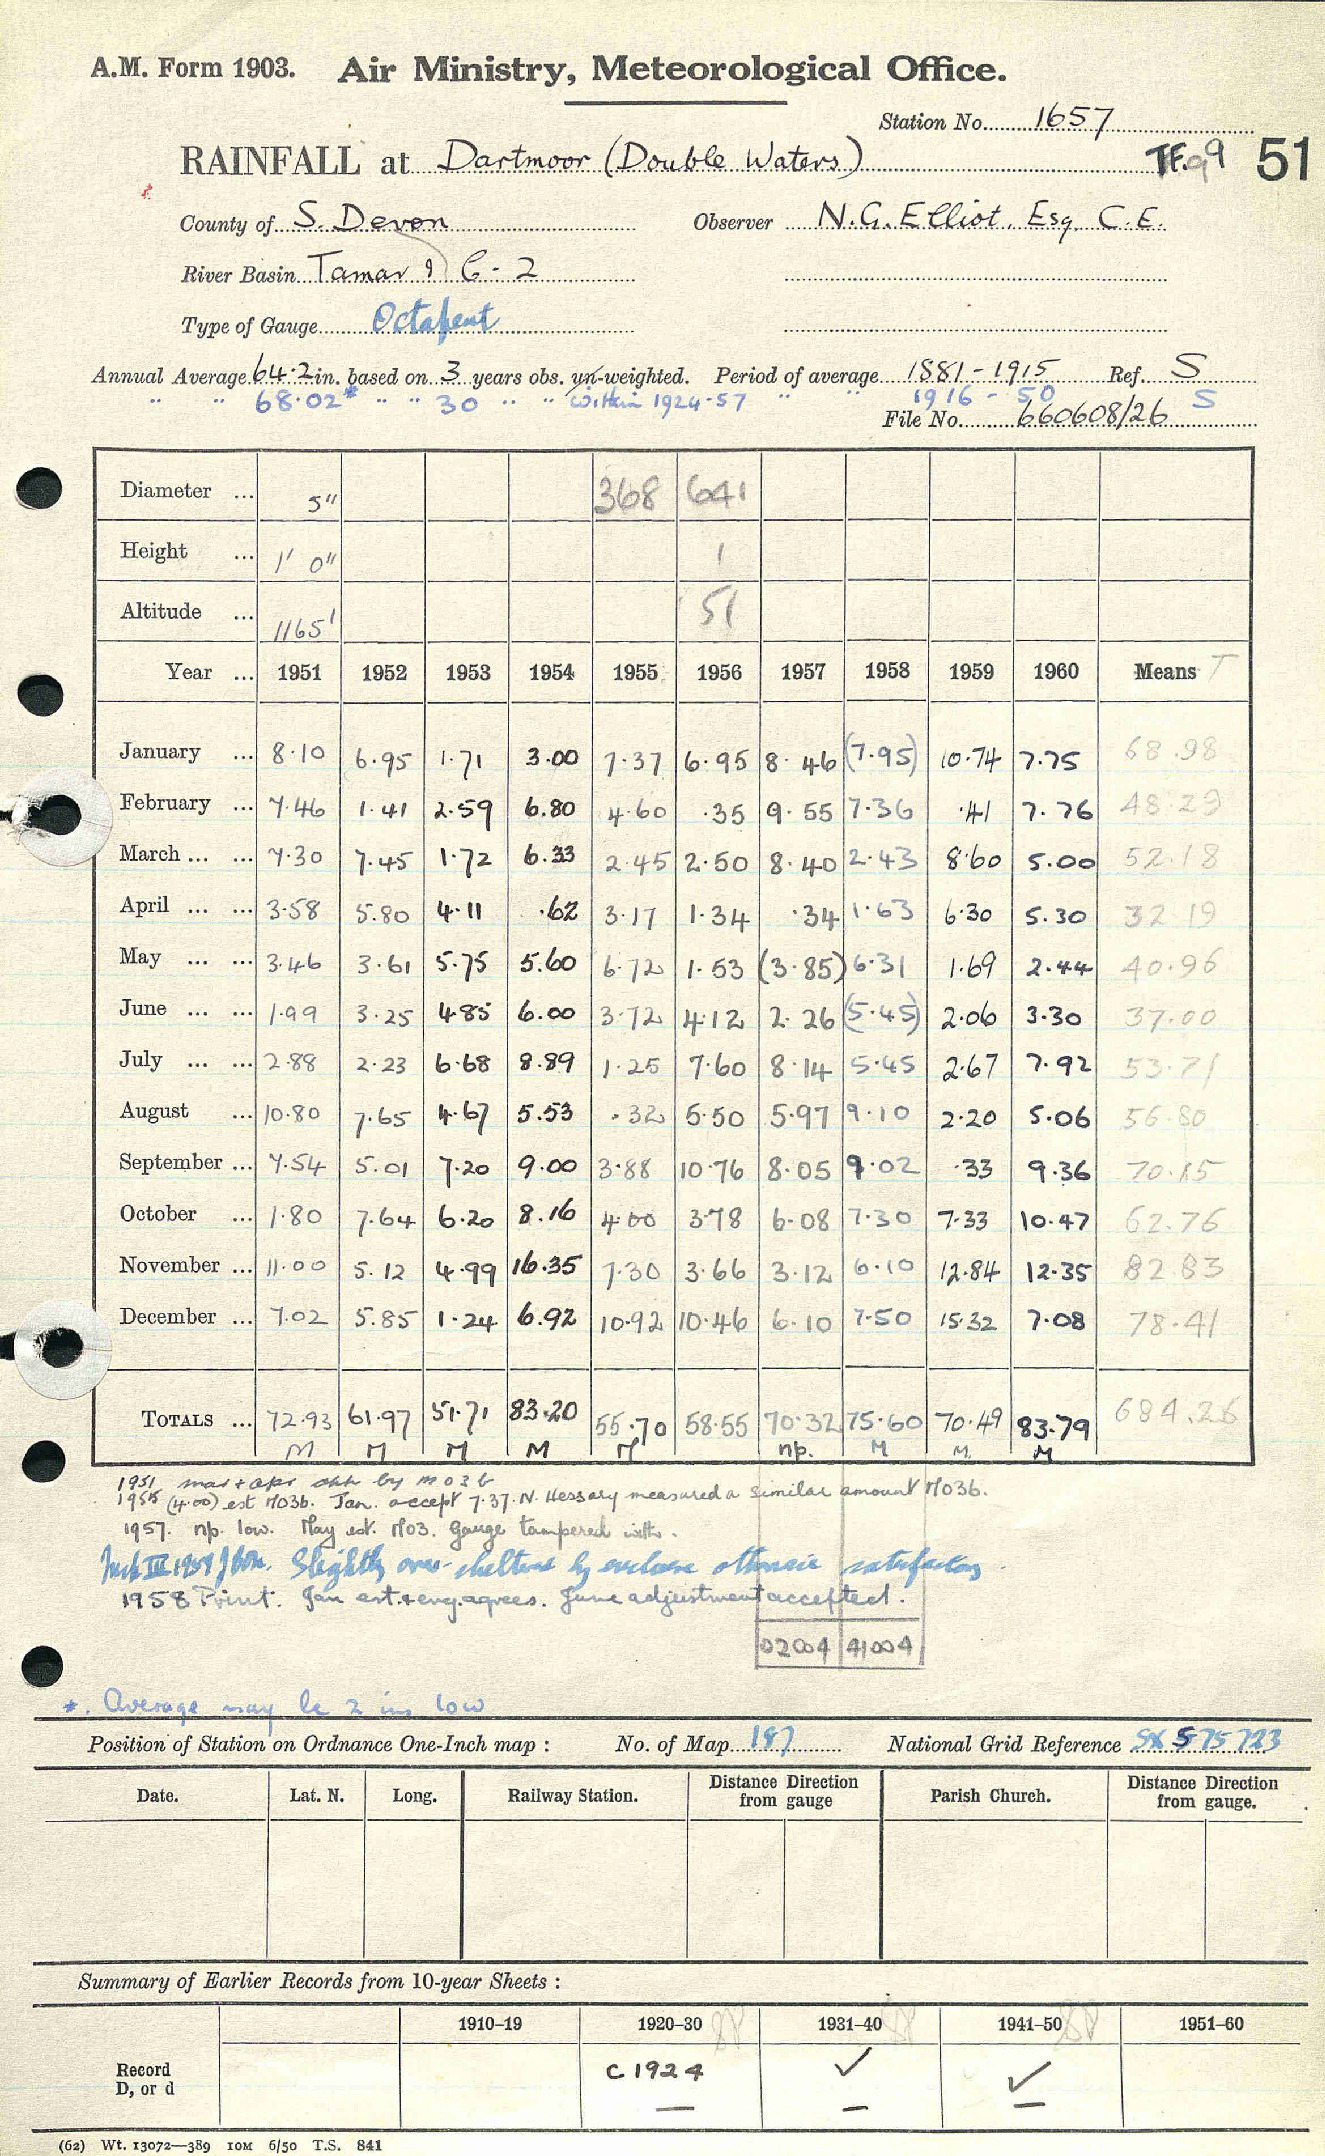 A.M. Form 1903. Air Ministry, Meteorological Office.
Station No. 1657
RAINFALL at Dartmoor (Double Waters) TF.99 51
County of S. Devon Observer N.G. Elliot, Esq C.E.
River Basin Tamar 9 C-2
Type of Gauge Octapent
Annual Average 64.2 in. based on 3 years obs. un-weighted. Period of average 1881-1915 Ref. S
" " 68.02* " " 30 " " within 1924-57 " " 1916-50 S
File No. 660608/26
Diameter ... 5" 368 641
Height ... 1' 0" 1
Altitude ... 1165' 51
Year ... 1951 1952 1953 1954 1955 1956 1957 1958 1959 1960 Means T
January ... 8.10 6.95 1.71 3.00 7.37 6.95 8.46 (7.95) 10.74 7.75 68.98
February ... 7.46 1.41 2.59 6.80 4.60 .35 9.55 7.36 .41 7.76 48 29
March ... ... 7.30 7.45 1.72 6.33 2.45 2.50 8.40 2.43 8.60 5.00 52.18
April ... ... 3.58 5.80 4.11 .62 3.17 1.34 .34 1.63 6.30 5.30 32 19
May ... ... 3.46 3.61 5.75 5.60 6.72 1.53 (3.85) 6.31 1.69 2.44 40.96
June ... ... 1.99 3.25 4.85 6.00 3.72 4.12 2.26 (5.45) 2.06 3.30 37.00
July ... ... 2.88 2.23 6.68 8.89 1.25 7.60 8.14 5.45 2.67 7.92 53.71
August ... 10.80 7.65 4.67 5.53 .32 5.50 5.97 9.10 2.20 5.06 56.80
September ... 7.54 5.01 7.20 9.00 3.88 10.76 8.05 9.02 .33 9.36 70.15
October ... 1.80 7.64 6.20 8.16 4.00 3.78 6.08 7.30 7.33 10.47 62.76
November ... 11.00 5.12 4.99 16.35 7.30 3.66 3.12 6.10 12.84 12.35 82 83
December ... 7.02 5.85 1.24 6.92 10.92 10.46 6.10 7.50 15.32 7.08 78.41
TOTALS ... 72.93 61.97 51.71 83.20 55.70 58.55 70.32 75.60 70.49 83.79 684.26
M M M M M np. M M. M
1951 mar + apr by M03b
1955 (4.00) est M03b. Jan. accept 7.37. N. Hessary measured a similar amount M03b.
1957. np. low. May est. M03. Gauge tampered with.
1958 Slightly over-sheltered by enclosure otherwise satisfactory
1958 Print. Jan est. + evg. agrees. June adjustment accepted.
02004 41004
*. Average may be 2 ins low
Position of Station on Ordnance One-Inch map : No. of Map 187 National Grid Reference SX 575 723
Date. Lat. N. Long. Railway Station. Distance Direction from gauge Parish Church. Distance Direction from gauge.
Summary of Earlier Records from 10-year Sheets :
1910–19 1920–30 1931–40 1941–50 1951–60
Record D, or d C 1924 ✓ ✓
(62) Wt. 13072—389 10M 6/50 T.S. 841